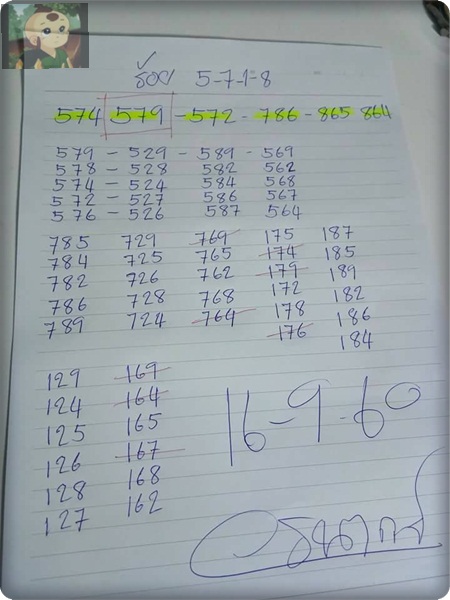 ร้อย 5-7-1-8
574 579 - 572 - 786 - 865 864
579 - 529 - 589 - 569
578 - 528 582 562
574 - 524 584 568
572 - 527 586 567
576 - 526 587 564
785 729 769 175 187
784 725 765 174 185
782 726 762 179 189
786 728 768 172 182
789 724 764 178 186
176 184
129 169
124 164
125 165
126 167
128 168
127 162
16-9-60